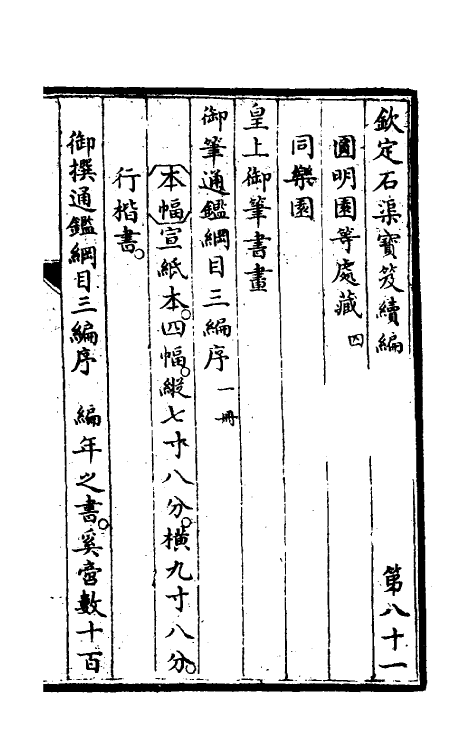 欽定石渠寶笈續編　第八十一
圓明園等處藏　四
同樂園
皇上御筆書畫
御筆通鑑綱目三編序　一冊
本幅宣紙本。四幅。縱七寸八分。橫九寸八分。
行楷書。
御撰通鑑綱目三編序　編年之書。奚啻數十百